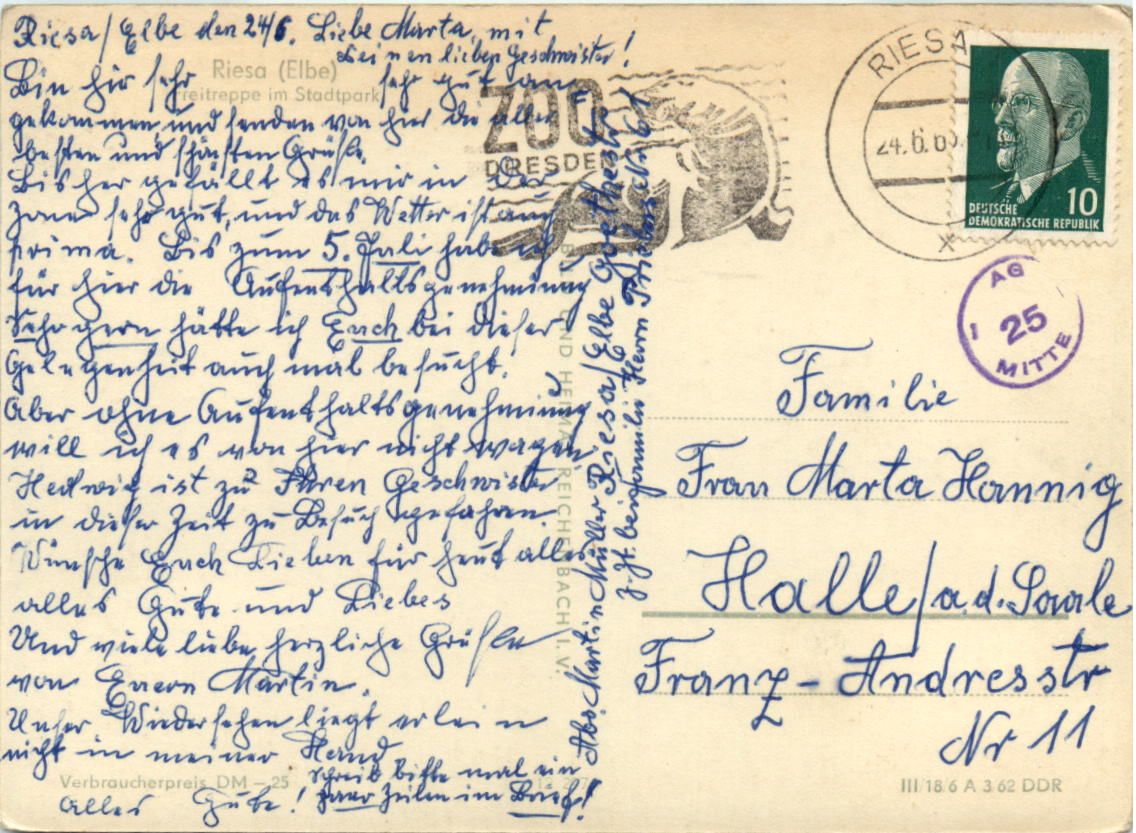 Riesa/Elbe den 24/6. Liebe Marta, mit
Deinen lieben Geschwister!
Riesa (Elbe)
Freitreppe im Stadtpark
Bin hir sehr sehr gut ange
gekommen und senden von hier die aller
besten und schönsten Grüße.
Bis her gefällt es mir in der
Zone sehr gut, und das Wetter ist auch
prima. Bis zum 5. Juli habe ich
für hier die Aufenthaltsgenehmiung
Sehr gern hätte ich Euch bei dieser
Gelegenheit auch mal besucht.
Aber ohne Aufenthaltsgenehmiung
will ich es von hier nicht wagen,
Hedwig ist zu Ihren Geschwister
in dieser Zeit zu Besuch gefahren.
Wünsche Euch Lieben für heut alles
alles Gute und Liebes
Und viele liebe herzliche Grüße
von Euern Martin.
Unser Wiedersehen liegt
nicht in meiner Hand
schreib bitte mal ein
paar Zeilen im Brief!
Alles Gute!
Verbraucherpreis DM -.25
Abs. Martin Müller Riesa/Elbe Goethestr
z. Zt. bei Familie Herrn
BILD UND HEIMAT REICHENBACH I. V.
ZOO
DRESDEN
RIESA
24.6.63
DEUTSCHE
DEMOKRATISCHE REPUBLIK
10
AG
I 25
MITTE
Familie
Frau Marta Hannig
Halle/a.d. Saale
Franz-Andresstr
Nr 11
III/18/6 A 3 62 DDR